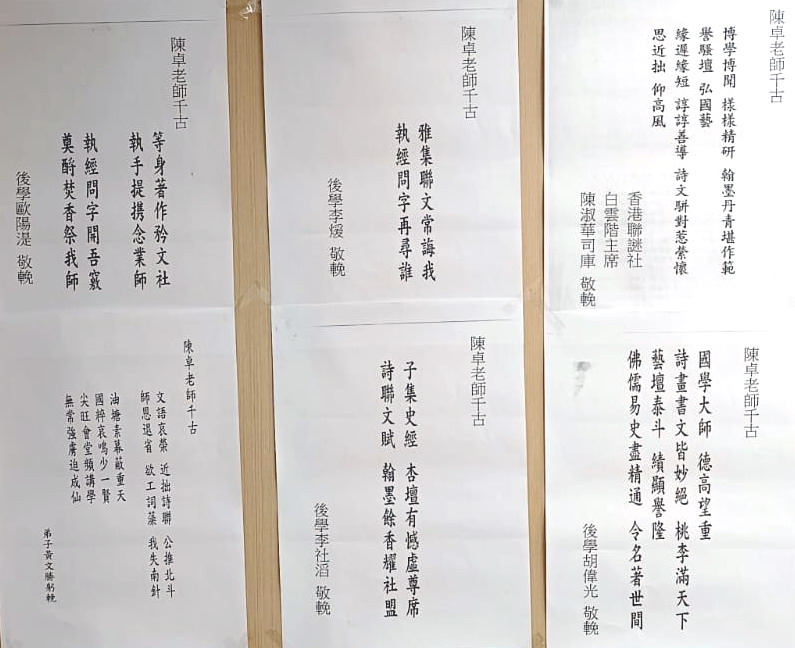 陳卓老師千古
博學博聞 樣樣精研 翰墨丹青堪作範
譽騷壇 弘國藝
緣遲緣短 諄諄善導 詩文駢對惹縈懷
思近拙 仰高風
香港聯謎社
白雲階主席
陳淑華司庫 敬輓
陳卓老師千古
雅集聯文常誨我
執經問字再尋誰
後學李煖 敬輓
陳卓老師千古
等身著作矜文社
執手提携念業師
執經問字開吾竅
奠酹焚香祭我師
後學歐陽湜 敬輓
陳卓老師千古
國學大師 德高望重
詩畫書文皆妙絕 桃李滿天下
藝壇泰斗 績顯譽隆
佛儒易史盡精通 令名著世間
後學胡偉光 敬輓
陳卓老師千古
子集史經 杏壇有憾虛尊席
詩聯文賦 翰墨餘香耀社盟
後學李社滔 敬輓
陳卓老師千古
文語哀榮 近拙詩聯 公推北斗
師恩退省 欲工詞藻 我失南針
油塘素幕蔽重天
國粹哀鳴少一賢
尖旺會堂頻講學
無常強虜迫成仙
弟子黃文勝躬輓